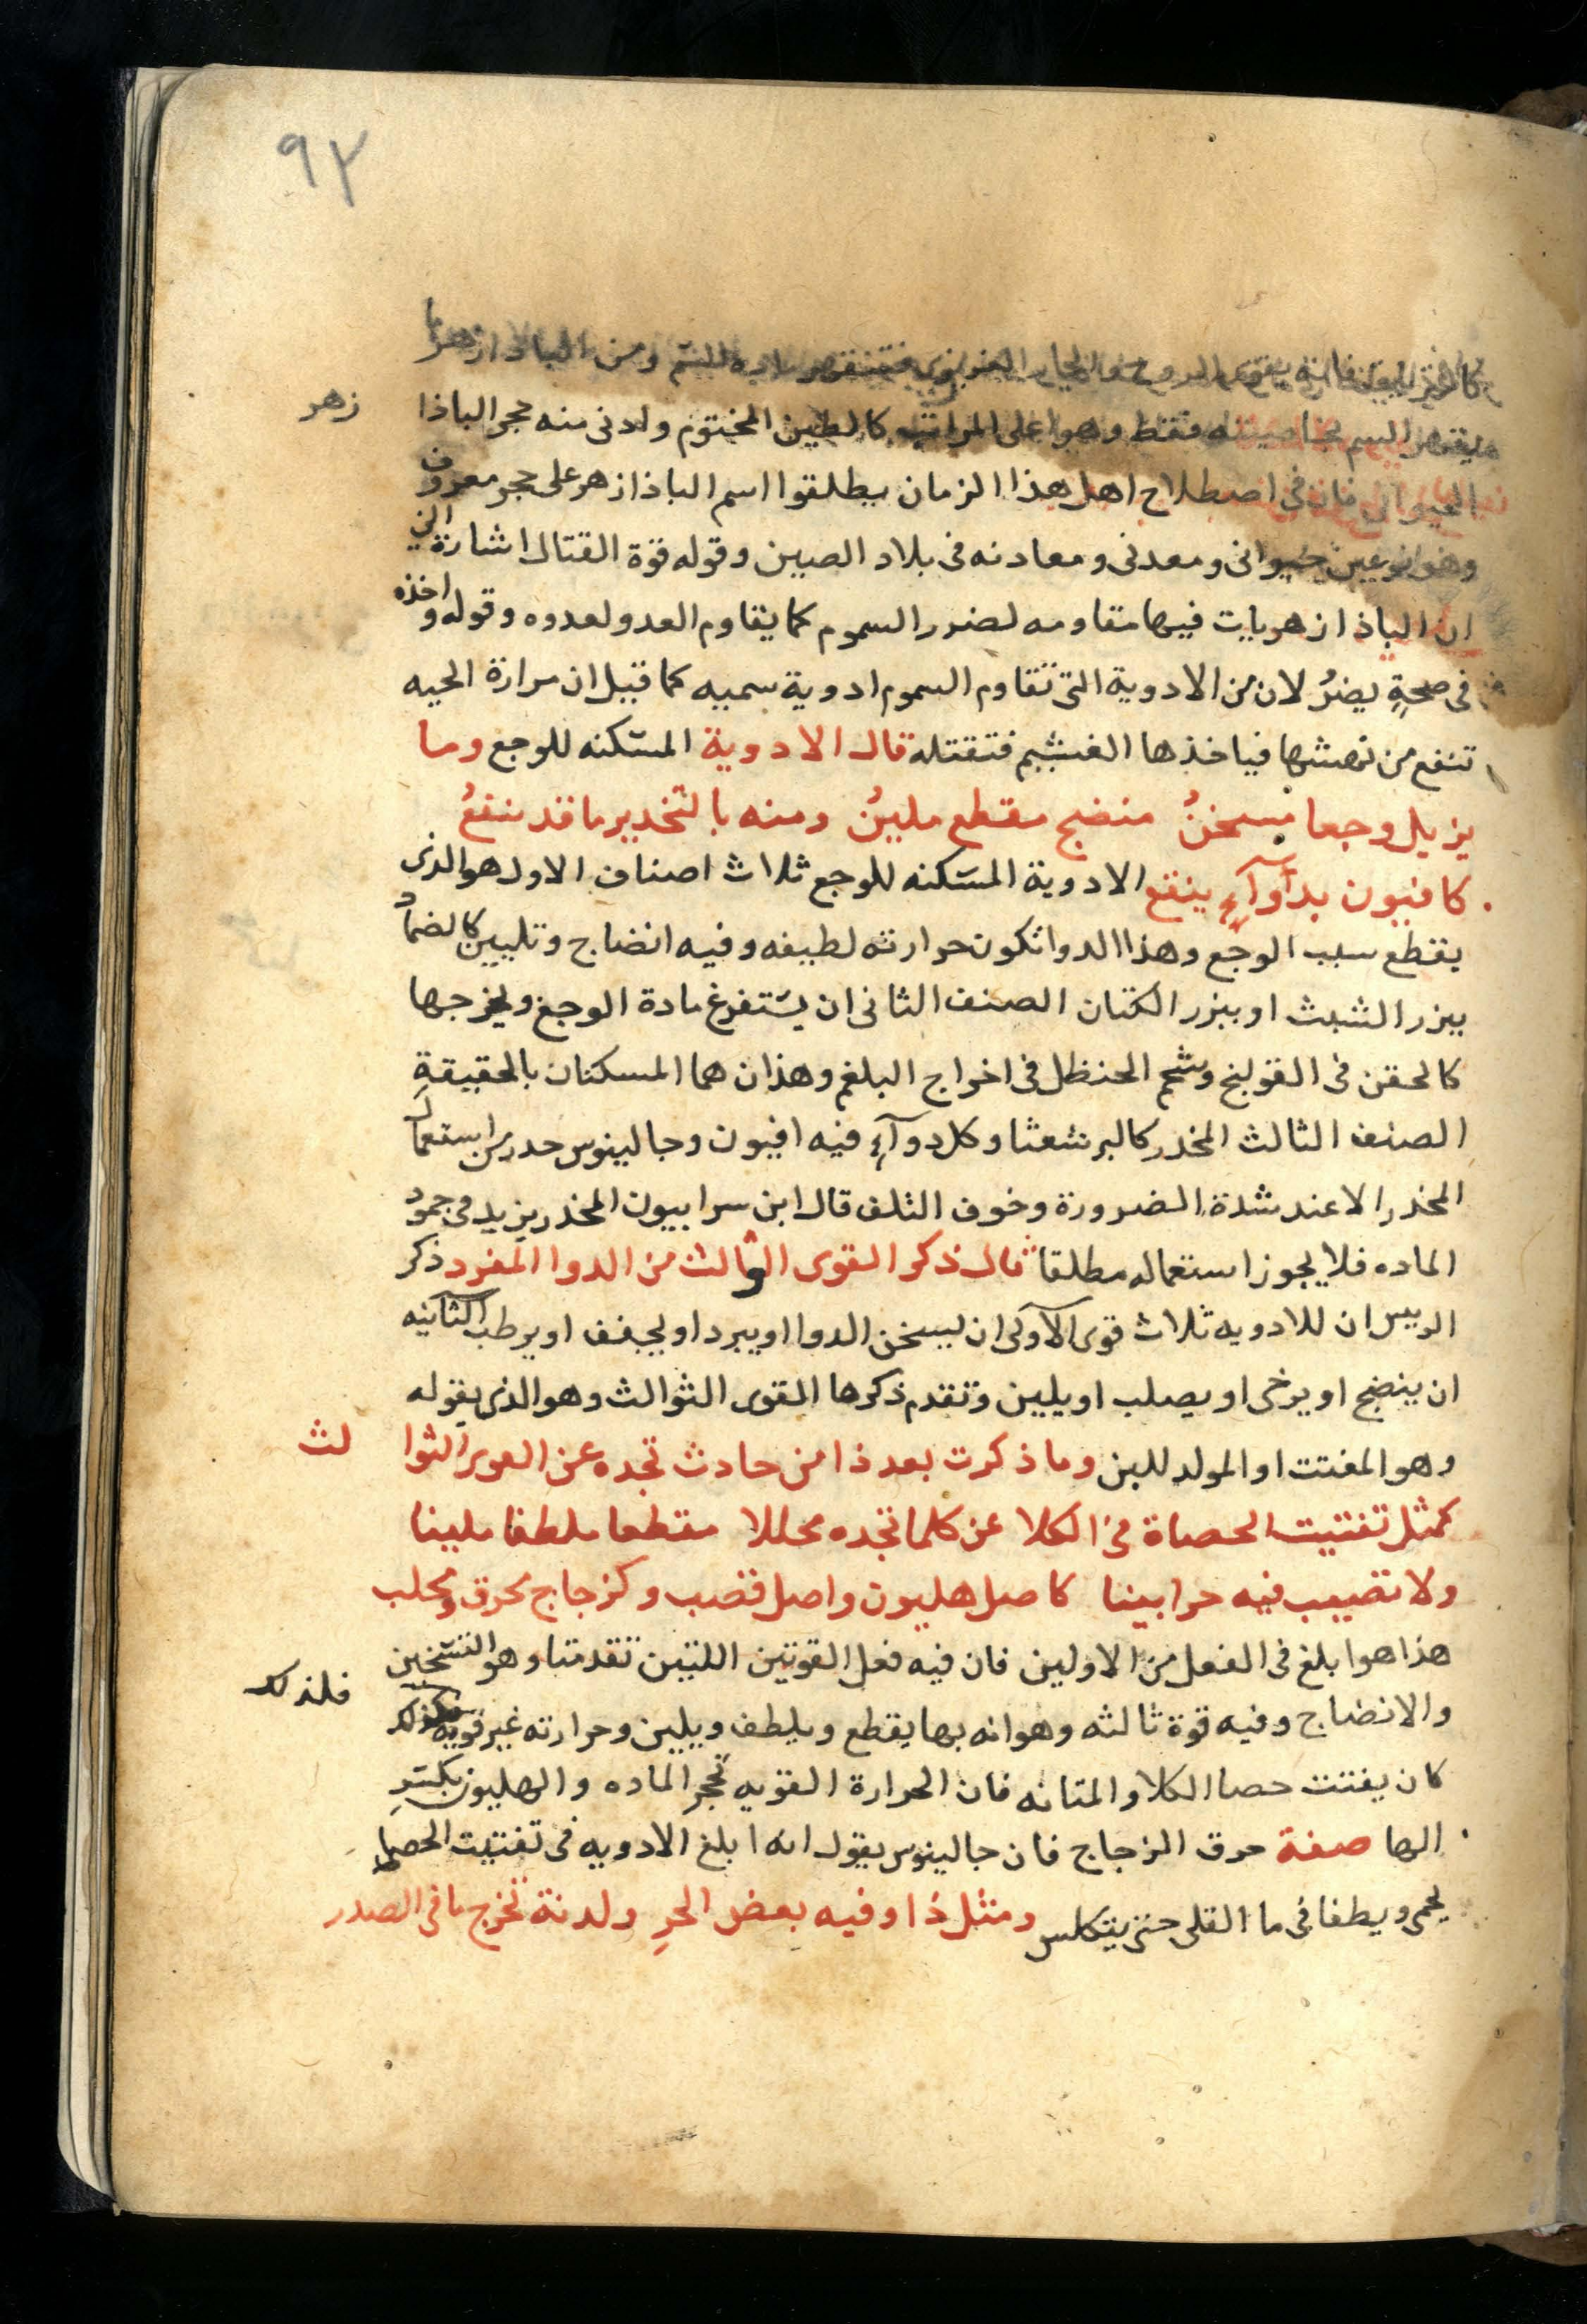 ٩٢
ومن الباذازهر ما
يقهر السم بخاصيته فقط وهو اعلى المراتب كالطين المختوم وادنى منه حجر الباذا زهر
الحيوانى فان فى اصطلاح اهل هذا الزمان يطلقوا اسم الباذازهر على حجر معروف
وهو نوعين حيوانى ومعدنى ومعادنه فى بلاد الصين وقوله قوة القتال اشارة الى
ان الباذازهريات فيها مقاومه لضرر السموم كما يقاوم العدو لعدوه وقوله واخذه
فى صحةٍ يضرُ لان من الادوية التى تقاوم السموم ادوية سميه كما قيل ان مرارة الحيه
تنفع من نهشها فياخذها الغشيم فتقتله قال الادوية المسكنه للوجع وما
يزيل وجعا مسخنُ منضج مقطع ملينُ ومنه بالتخدير ما قد ينفعُ
كافيون بدآوآءٍ ينقع الادوية المسكنه للوجع ثلاث اصناف الاول هو الذى
يقطع سبب الوجع وهذا الدوا تكون حرارته لطيفه وفيه انضاج وتليين كالضماد
ببزر الشبث او ببزر الكتان الصنف الثانى ان يستفرغ مادة الوجع ويخرجها
كالحقن فى القولنج وشحم الحنظل فى اخراج البلغم وهذان هما المسكنان بالحقيقةِ
الصنف الثالث المخدر كالبرشعثا وكل دوآءٍ فيه افيون وجالينوس حدر من استعمال
المخدر الا عند شدة الضرورة وخوف التلف قال ابن سرابيون المخدر يزيد فى جمود
الماده فلا يجوز استعماله مطلقا قال ذكر القوى الثوالث من الدوا المفرد ذكر
الرييس ان للادويه ثلاث قوى الآولى ان يسخن الدوا او يبرد او يجفف او يرطب الثانيه
ان ينضج او يرخى او يصلب او يلين وتقدم ذكرها القوى الثوالث وهو الذى بقوله
وهو المفتت او المولد للبن وما ذكرت بعد ذا من حادث تجده عن القوى الثوا لث
كمثل تفتيت الحصاة فى الكلا عن كلما تجده محللا مقطعا ملطفا ملينا
ولا تصيب فيه حرا بينا كاصل هليون واصل قصب وكزجاج محرق ومحلب
هذا هو ابلغ فى الفعل من الاولين فان فيه فعل القوتين اللتين تقدمتا وهو التسخين
والانضاج وفيه قوة ثالثه وهو انه بها يقطع ويلطف ويلين وحرارته غير قويه فلذلك
كان يفتت حصا الكلا والمثانه فان الحرارة القويه تحجر الماده والهليون بكسرِ
الها صفة حرق الزجاج فان جالينوس يقول انه ابلغ الادويه فى تفتيت الحصا
يحمى ويطفا فى ما القلى حتى يتكلس ومثل ذا وفيه بعض الحرِ ولدنة تخرج ما فى الصدر